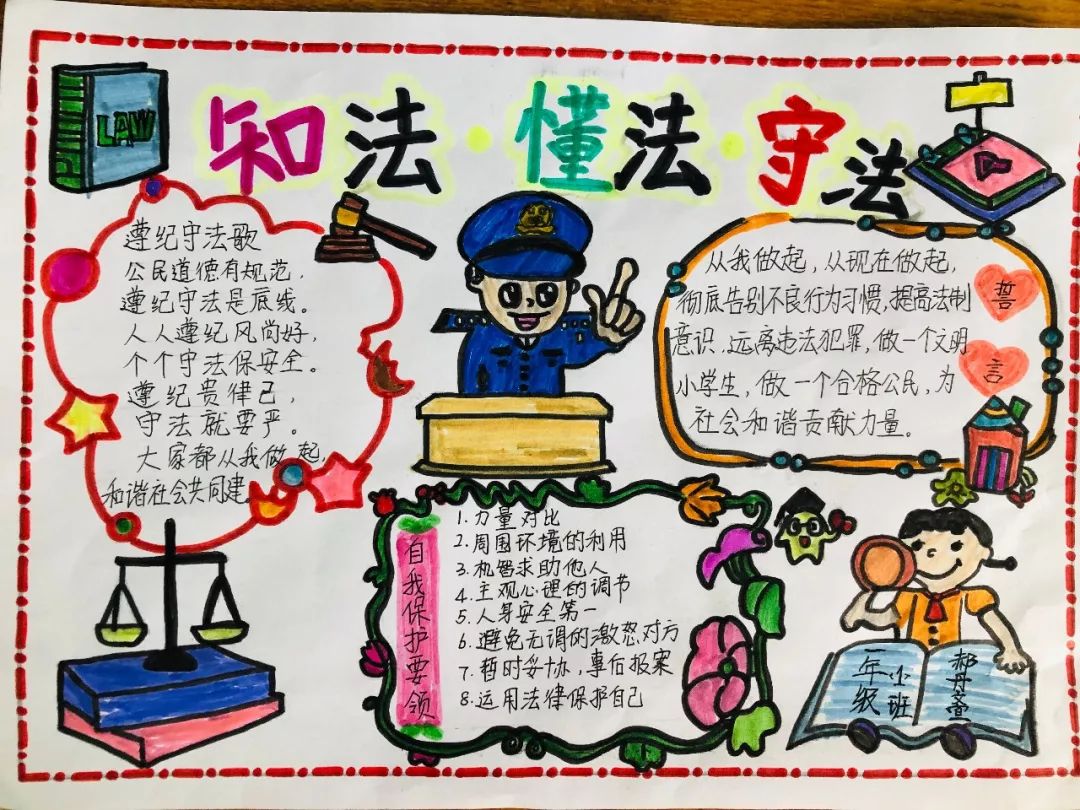 LAW
知法·懂法·守法
遵纪守法歌
公民道德有规范，
遵纪守法是底线。
人人遵纪风尚好，
个个守法保安全。
遵纪贵律己，
守法就要严。
大家都从我做起，
和谐社会共同建。
从我做起，从现在做起，
彻底告别不良行为习惯，提高法制
意识，远离违法犯罪，做一个文明
小学生，做一个合格公民，为
社会和谐贡献力量。
誓言
自我保护要领
1.力量对比
2.周围环境的利用
3.机智求助他人
4.主观心理的调节
5.人身安全第一
6.避免无谓的激怒对方
7.暂时妥协，事后报案
8.运用法律保护自己
一年级
小班
郝丹萱